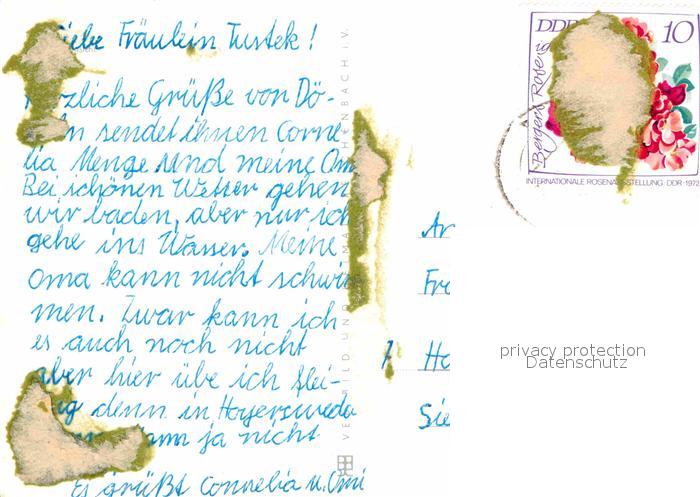 Liebe Fräulein Tustek!
Herzliche Grüße von Dö-
ln sendet ihnen Corne-
lia Menge und meine Oma
Bei schönen Wetter gehen
wir baden, aber nur ich
gehe ins Wasser. Meine
Oma kann nicht schwim
men. Zwar kann ich
es auch noch nicht
aber hier übe ich flei-
ßig denn in Hoyerswerda
kann ja nicht
Es grüßt Cornelia u. Omi
DDR 10
Bergers Rose
INTERNATIONALE ROSENAUSSTELLUNG DDR·1972
An
Fr
Ho
Sie
privacy protection
Datenschutz